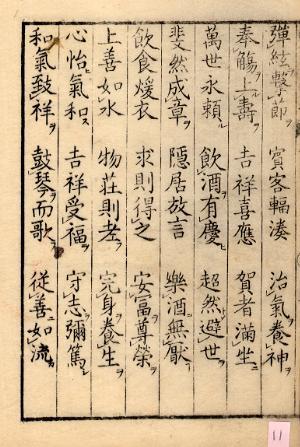 彈絃擊節ヲ 賓客輻湊 治氣養神ヲ
奉觴上壽ヲ 吉祥喜應 賀者滿坐ニ
萬世永賴ル 飲酒有慶 超然避世ヲ
斐然成章ヲ 隱居放言 樂酒無厭
飲食煖衣 求則得之 安富尊榮
上善如水 物莊則老 完身養生ヲ
心怡氣和ス 吉祥受福ヲ 守志彌篤シ
和氣致祥ヲ 鼓琴而歌 從善如流
11